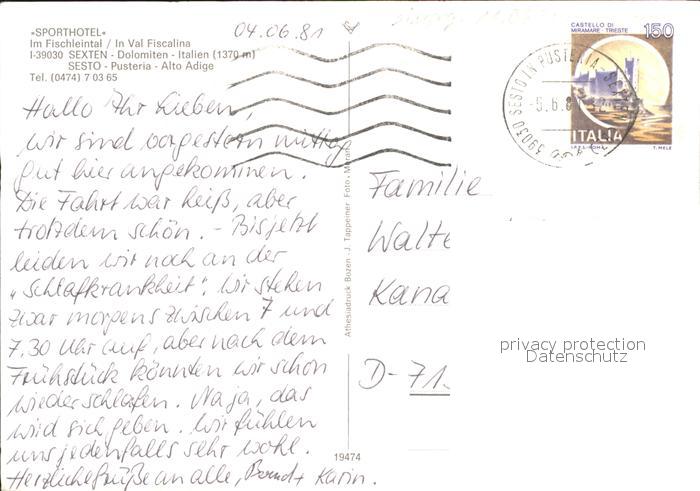 »SPORTHOTEL«
Im Fischleintal / In Val Fiscalina
I-39030 SEXTEN - Dolomiten - Italien (1370 m)
SESTO - Pusteria - Alto Adige
Tel. (0474) 7 03 65
04.06.81
Hallo Ihr Lieben,
wir sind vorgestern mittag
gut hier angekommen.
Die Fahrt war heiß, aber
trotzdem schön. - Bis jetzt
leiden wir noch an der
"Schlafkrankheit". Wir stehen
zwar morgens zwischen 7 und
7.30 Uhr auf, aber nach dem
Frühstück könnten wir schon
wieder schlafen. Na ja, das
wird sich geben. Wir fühlen
uns jedenfalls sehr wohl.
Herzliche Grüße an alle, Bernd + Karin.
Athesiadruck Bozen - J. Tappeiner Foto - Meran
19474
CASTELLO DI
MIRAMARE - TRIESTE
150
ITALIA
I.P.Z.S.-ROMA
T. MELE
39030 SESTO IN PUSTERIA
-5.6.8
Familie
Walte
Kana
D-71
privacy protection
Datenschutz